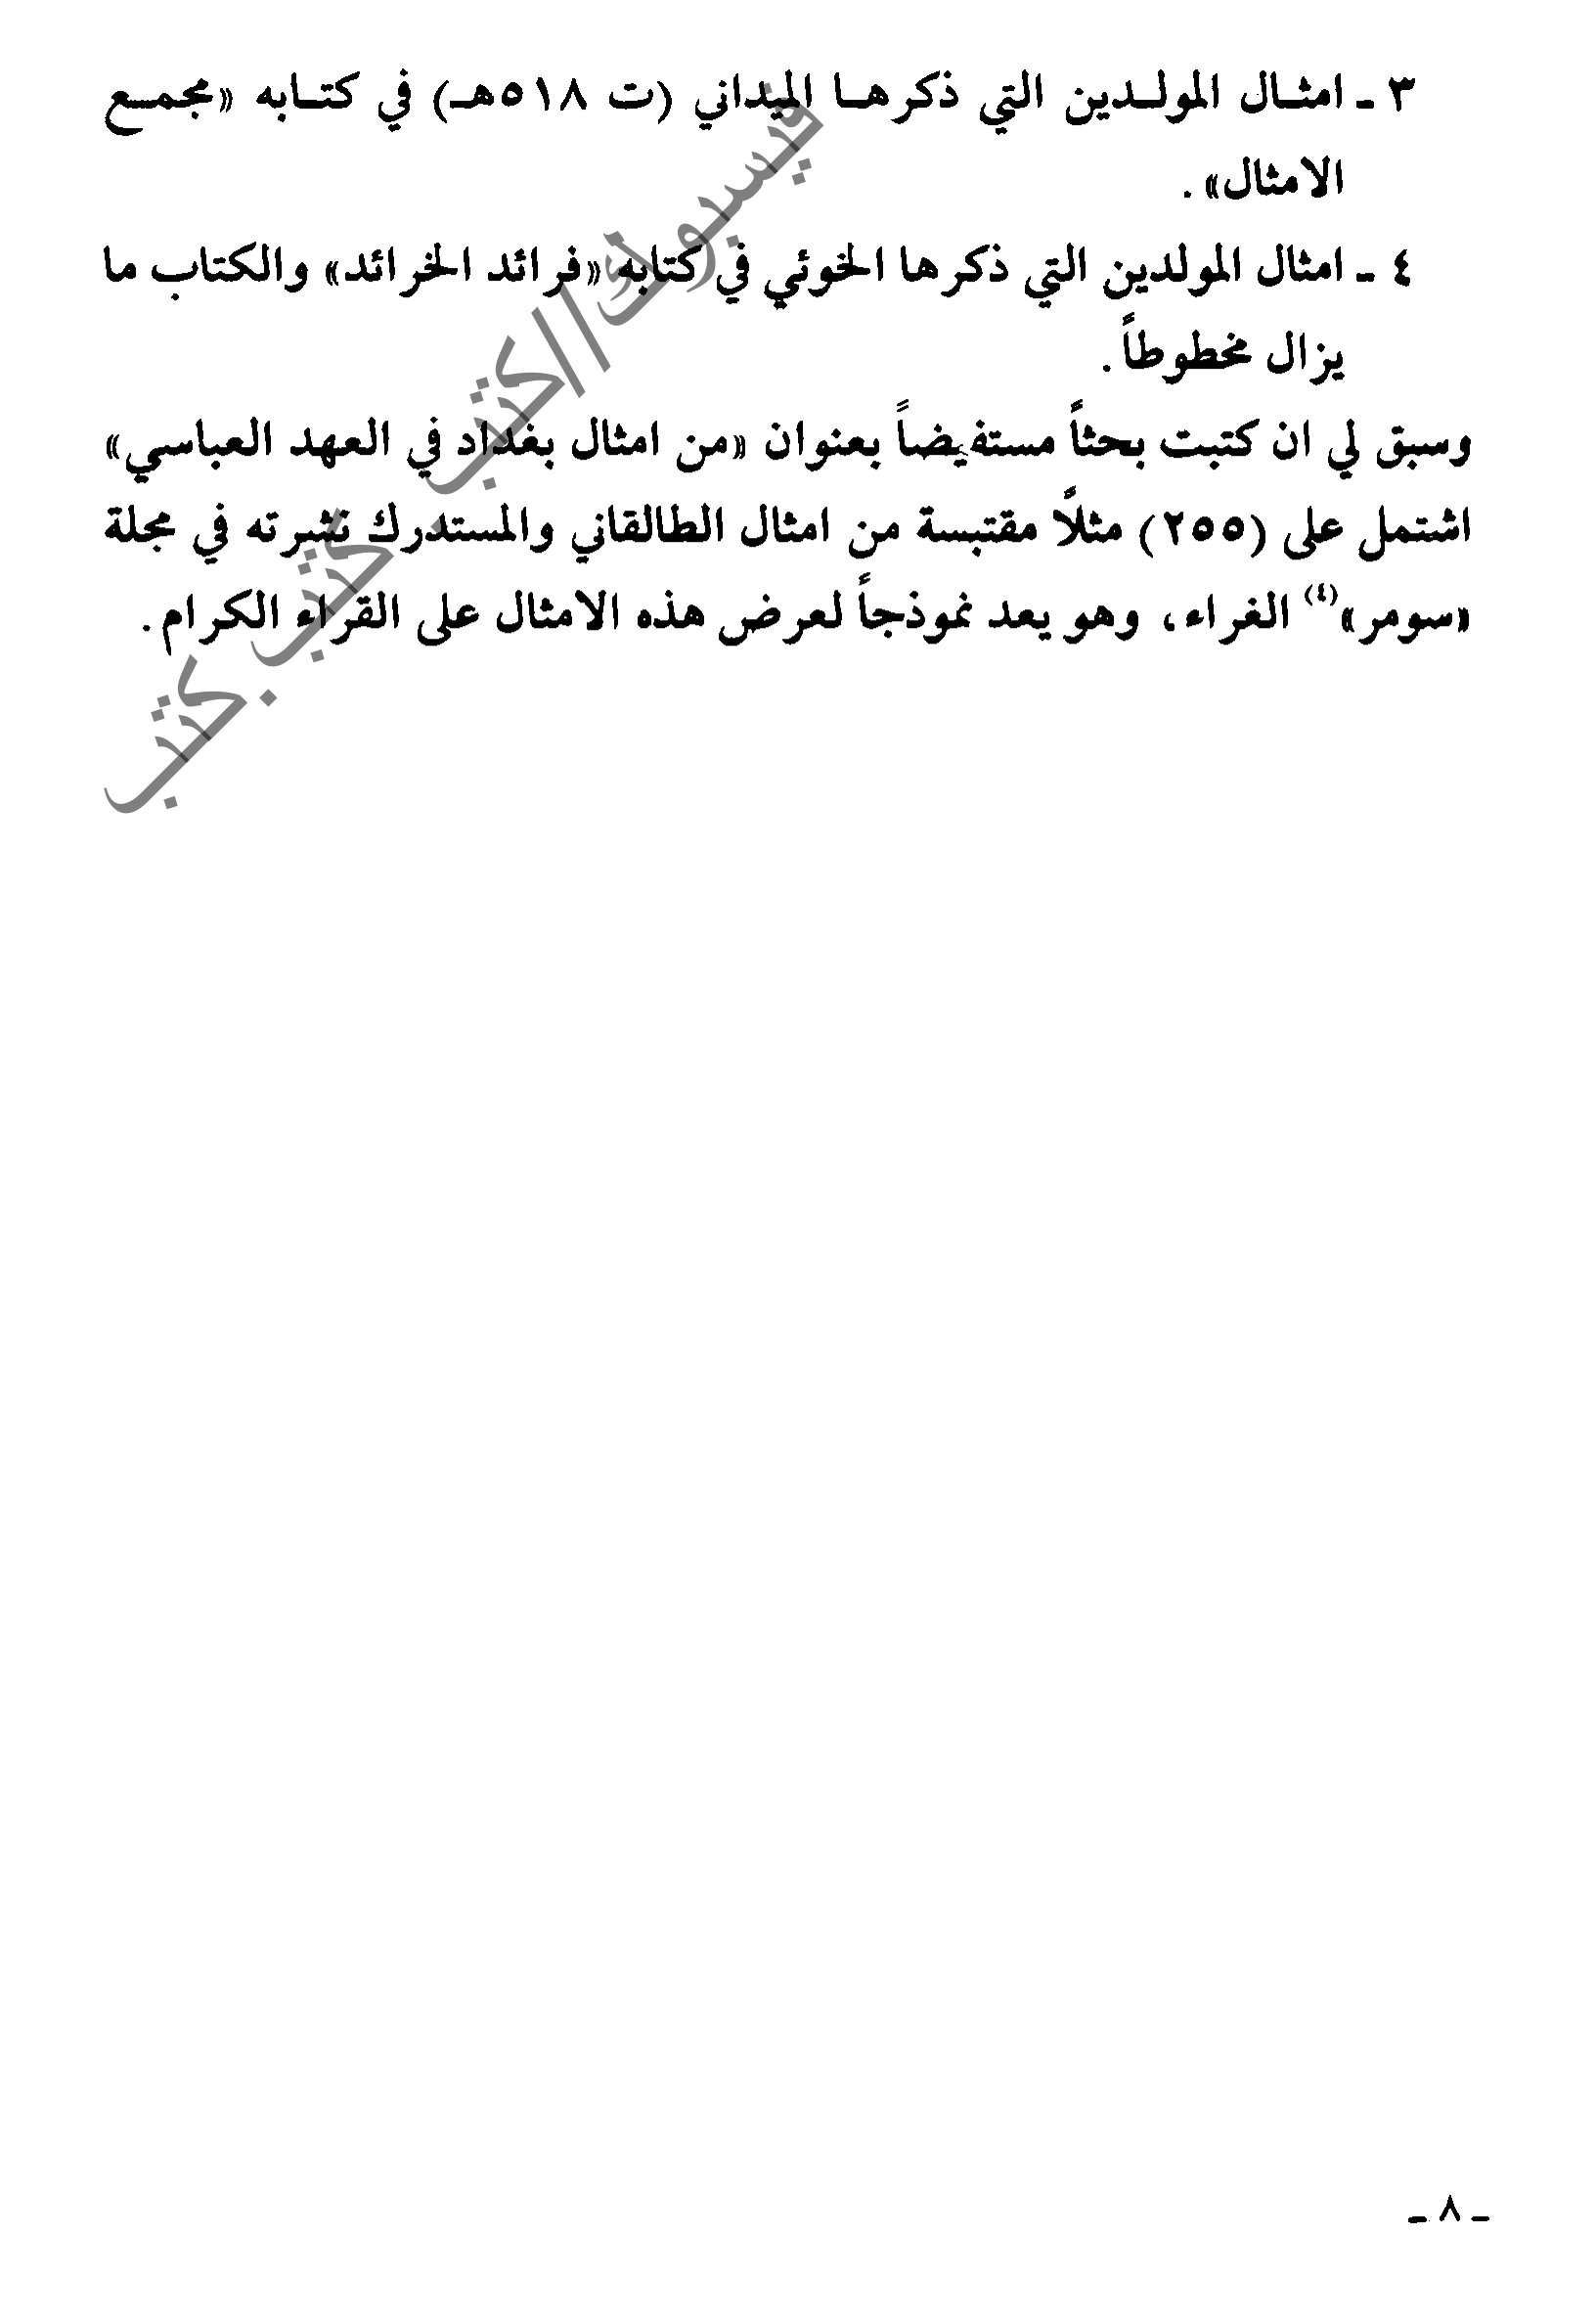 ٣ ـ امثـال المولـدين التي ذكرهـا الميداني (ت ٥١٨هـ) في كتـابه «مجمـع
الامثال» .
٤ ـ امثال المولدين التي ذكرها الخوئي في كتابه «فرائد الخرائد» والكتاب ما
يزال مخطوطاً .
وسبق لي ان كتبت بحثاً مستفيضاً بعنوان «من امثال بغداد في العهد العباسي»
اشتمل على (٢٥٥) مثلاً مقتبسة من امثال الطالقاني والمستدرك نشرته في مجلة
«سومر»(٤) الغراء، وهو يعد نموذجاً لعرض هذه الامثال على القراء الكرام .
فيسبوك//كتب.كتب.كتب
ـ ٨ ـ